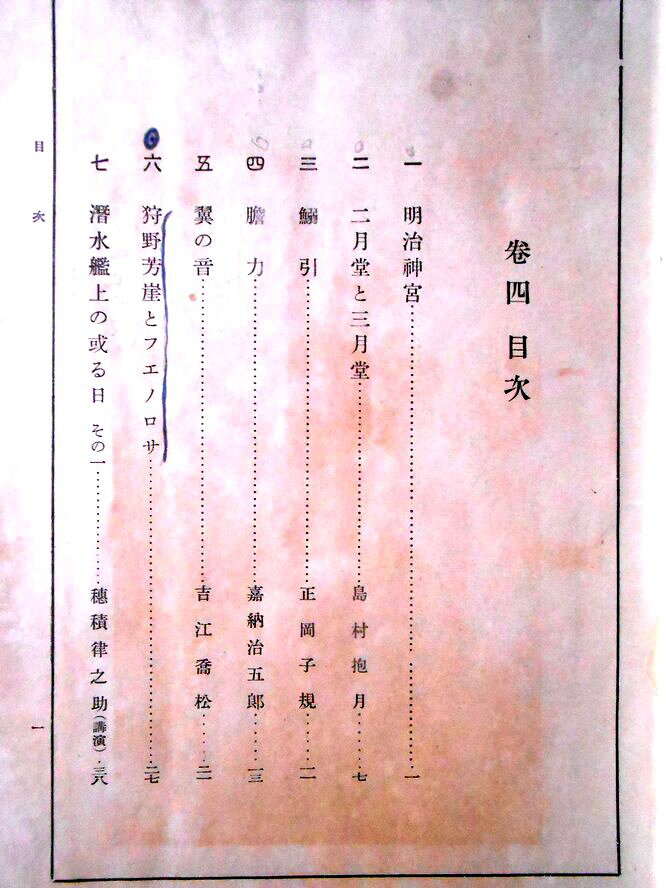 卷四 目次
一 明治神宮 一
二 二月堂と三月堂 島村抱月 七
三 鰯引 正岡子規 一一
四 膽力 嘉納治五郎 一三
五 翼の音 吉江喬松 二一
六 狩野芳崖とフエノロサ 二七
七 潛水艦上の或る日 その一 穗積律之助(講演) 三八
目次
一